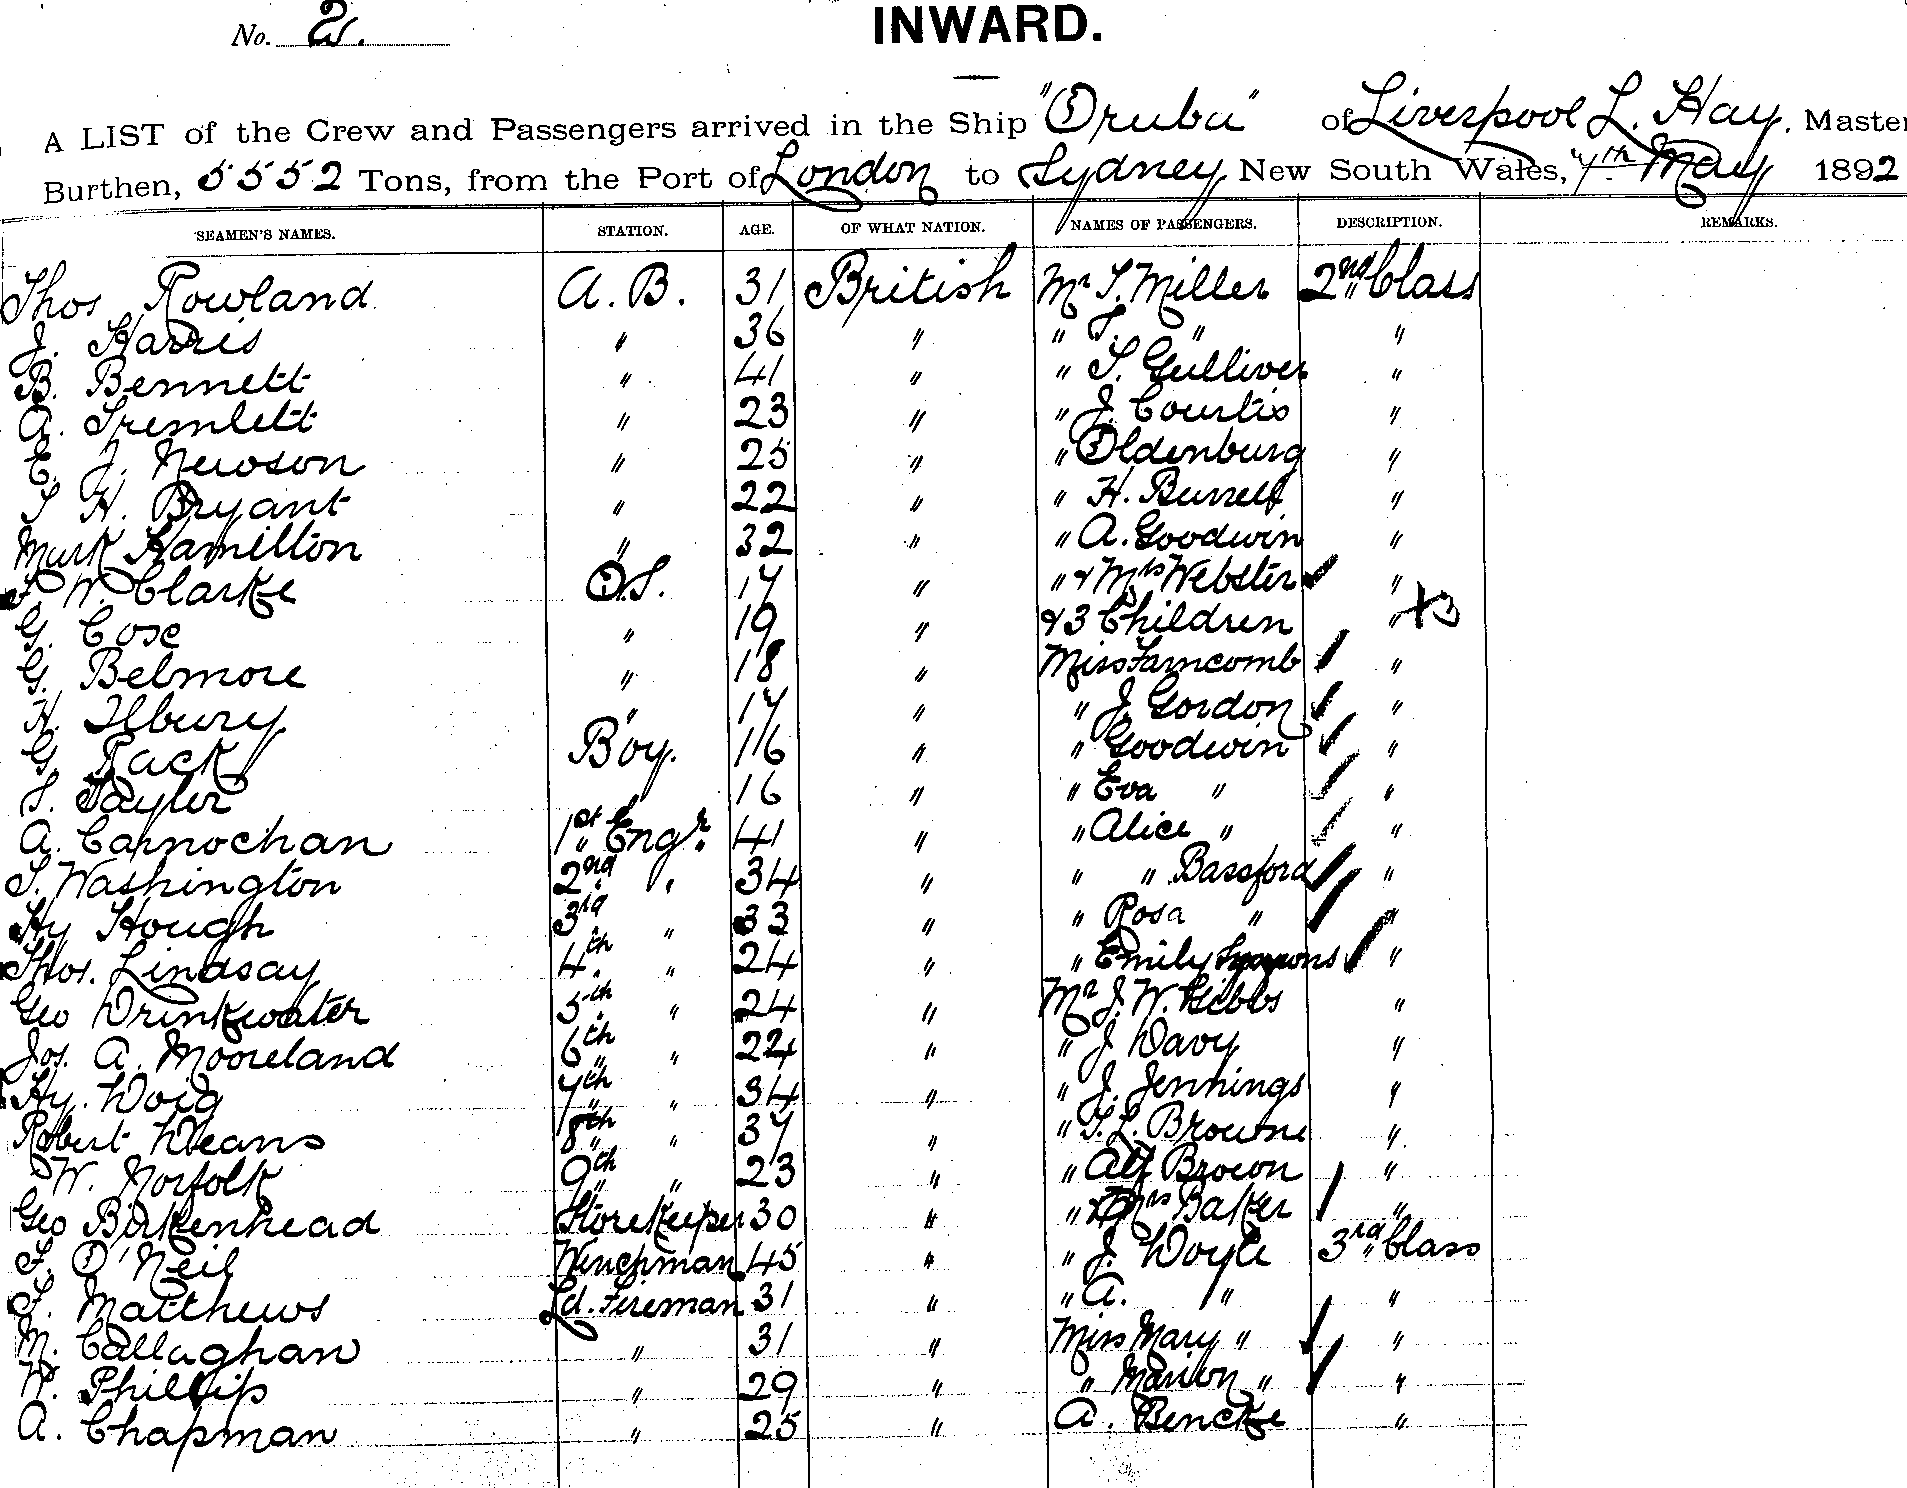 No. 2.
INWARD.
A LIST of the Crew and Passengers arrived in the Ship "Oruba" of Liverpool L. Hay, Master
Burthen, 5552 Tons, from the Port of London to Sydney New South Wales, 7th May 1892
SEAMEN'S NAMES. STATION. AGE. OF WHAT NATION. NAMES OF PASSENGERS. DESCRIPTION. REMARKS.
Thos Rowland A. B. 31 British Mr T. Miller 2nd Class
J. Harris " 36 " " T. " "
B. Bennett " 41 " " T. Gulliver "
A. Tremlett " 23 " " J. Courtis "
E. J. Newson " 25 " " Oldenburg "
T H. Bryant " 22 " " H. Burrell "
Mark Hamilton " 32 " " A. Goodwin "
W. Clarke O.S. 17 " " & Mrs Webster "
G. Cose " 19 " & 3 Children " +3
G. Belmore " 18 " Miss Farncomb "
H. Ilbury " 17 " " J. Gordon "
G. Pack Boy. 16 " " Goodwin "
S. Tayler 16 " " Eva " "
A. Carnochan 1st Engr. 41 " " Alice " "
T. Washington 2nd " 34 " " " Bassford "
Hy Hough 3rd " 33 " " Rosa " "
Thos. Lindsay 4th " 24 " " Emily Symons "
Geo Drinkwater 5th " 24 " Mr J. W. Gibbs "
Jos. A. Mooreland 6th " 24 " " J Davy "
Hy. Doig 7th " 34 " " J. Jennings "
Robert Deans 8th " 37 " " T. L. Browne "
W. Norfolk 9th " 23 " " Alf Brown "
Geo Birkenhead Storekeeper 30 " " Mrs Baker "
F. O'Neil Winchman 45 " " J. Doyle 3rd Class
T. Matthews Ld. Fireman 31 " " A. " "
M. Callaghan " 31 " Miss Mary " "
W. Phillip " 29 " " Marion " "
A. Chapman " 25 " A. Bencke "